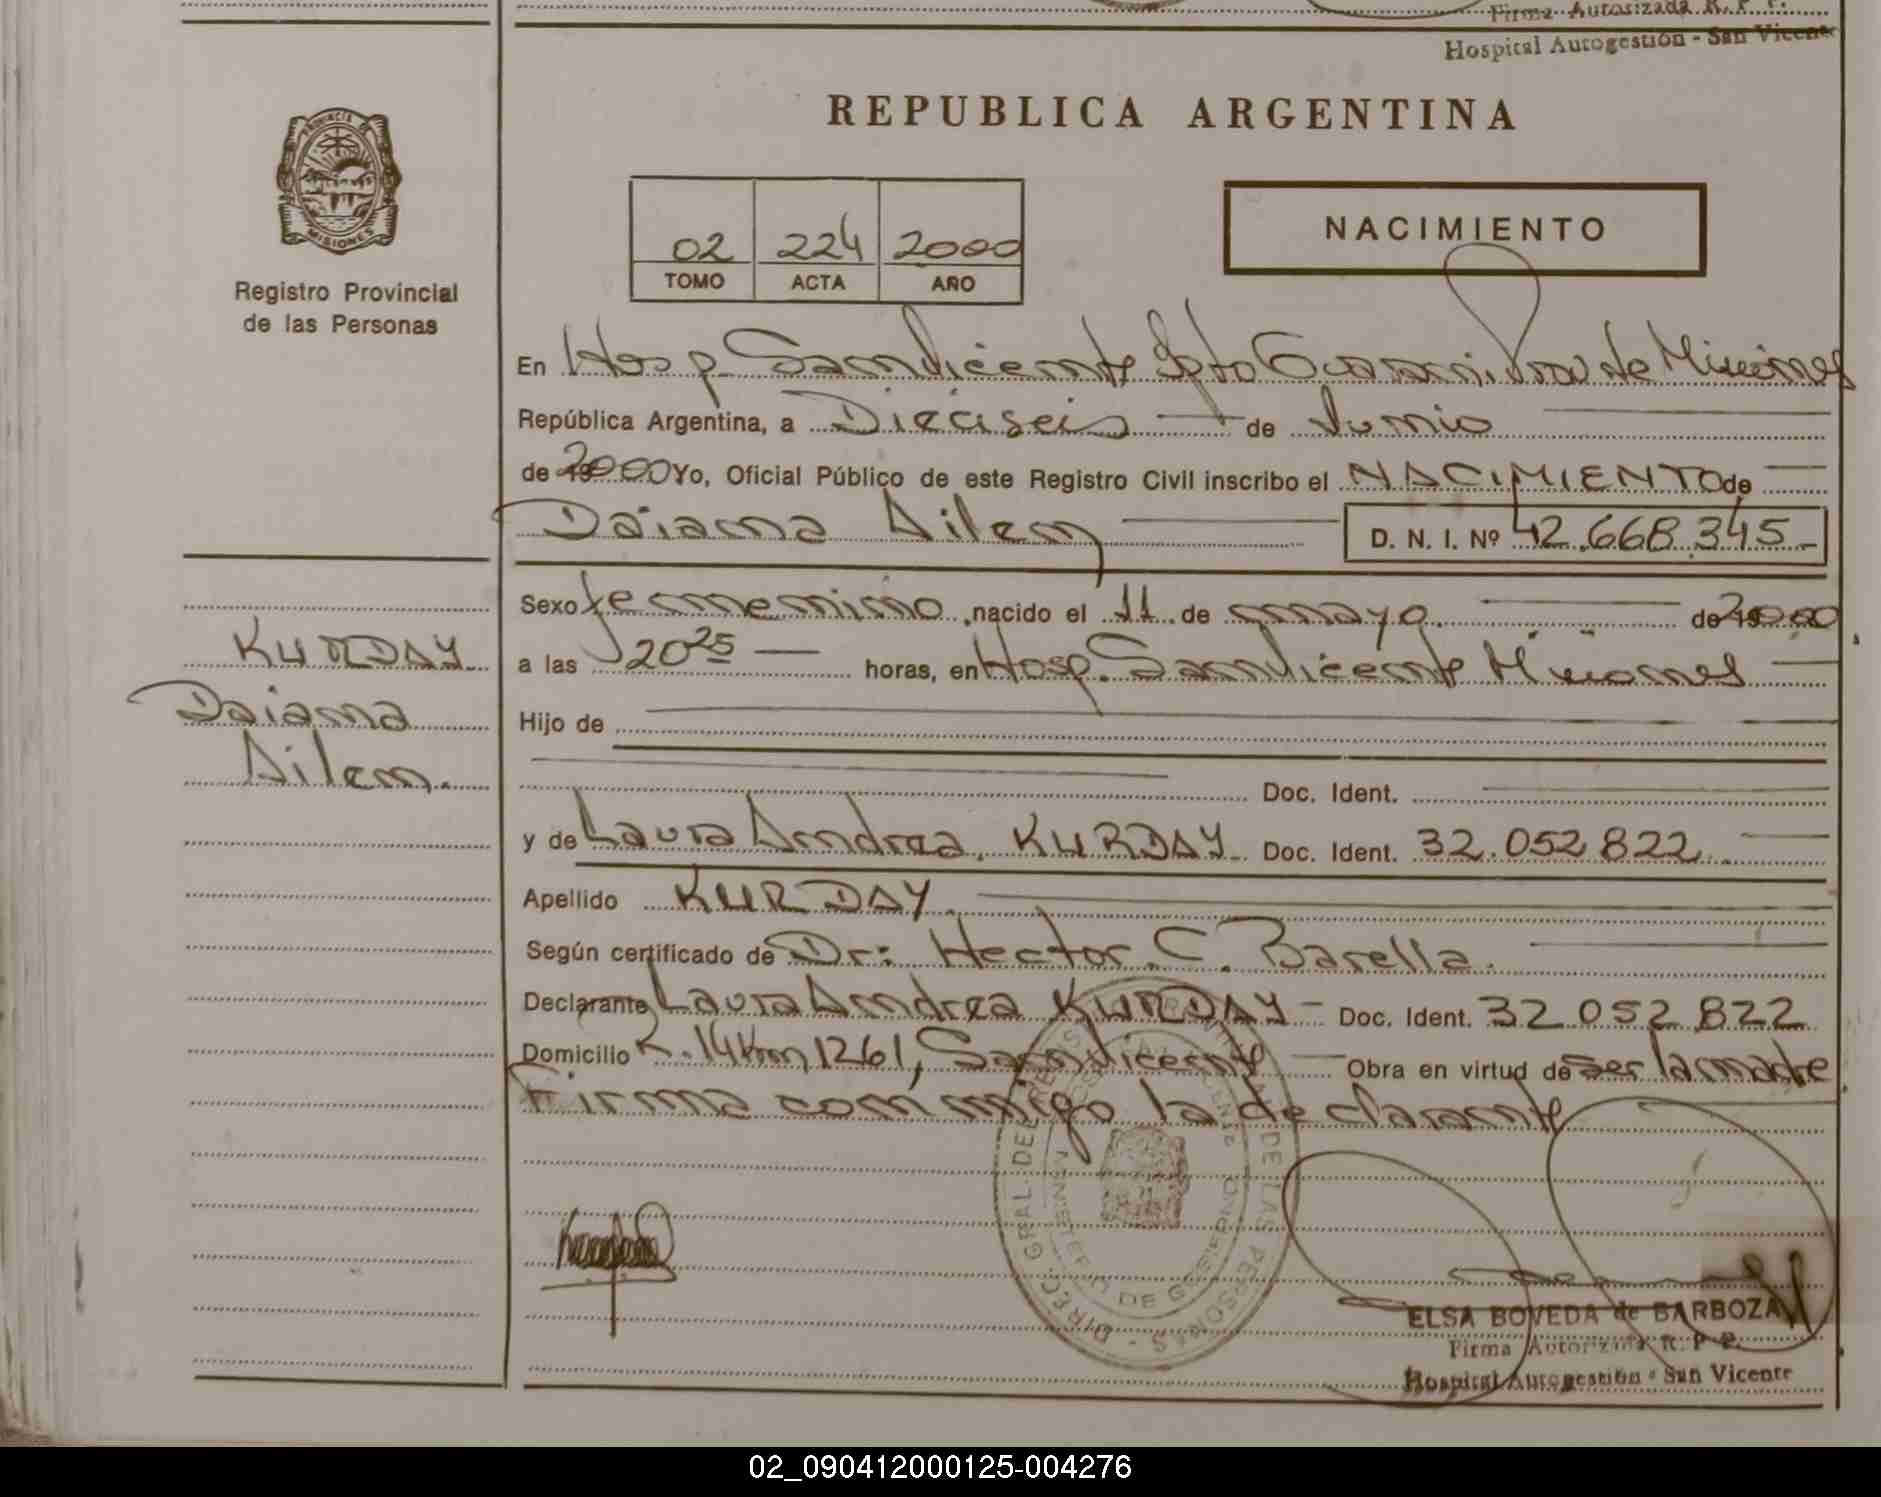 Firma Autorizada R. P. P.
Hospital Autogestión - San Vicente
PROVINCIA DE
MISIONES
Registro Provincial
de las Personas
REPUBLICA ARGENTINA
02 224 2000
TOMO ACTA AÑO
NACIMIENTO
En Hosp. San Vicente Dpto Guarani. Prov de Misiones
República Argentina, a Dieciseis de Junio
de 2000 Yo, Oficial Público de este Registro Civil inscribo el NACIMIENTO de
Daiana Ailen D. N. I. Nº 42.668.345
Sexo femenino nacido el 11 de mayo de 2000
a las 20 25 horas, en Hosp. San Vicente Misiones
Hijo de
Doc. Ident.
y de Laura Andrea KURDAY Doc. Ident. 32.052 822
Apellido KURDAY
Según certificado de Dr: Hector. C. Barella.
Declarante Laura Andrea KURDAY Doc. Ident. 32 052 822
Domicilio R. 14 Km 1261, San Vicente Obra en virtud de ser la madre
Firma conmigo la declarante
KURDAY
Daiana
Ailen.
DIREC. GRAL. DEL REGIS DE LAS PERSONAS
MINISTERIO DE GOBIERNO
ELSA BOVEDA de BARBOZA
Firma Autorizada R. P. P.
Hospital Autogestión - San Vicente
02_090412000125-004276